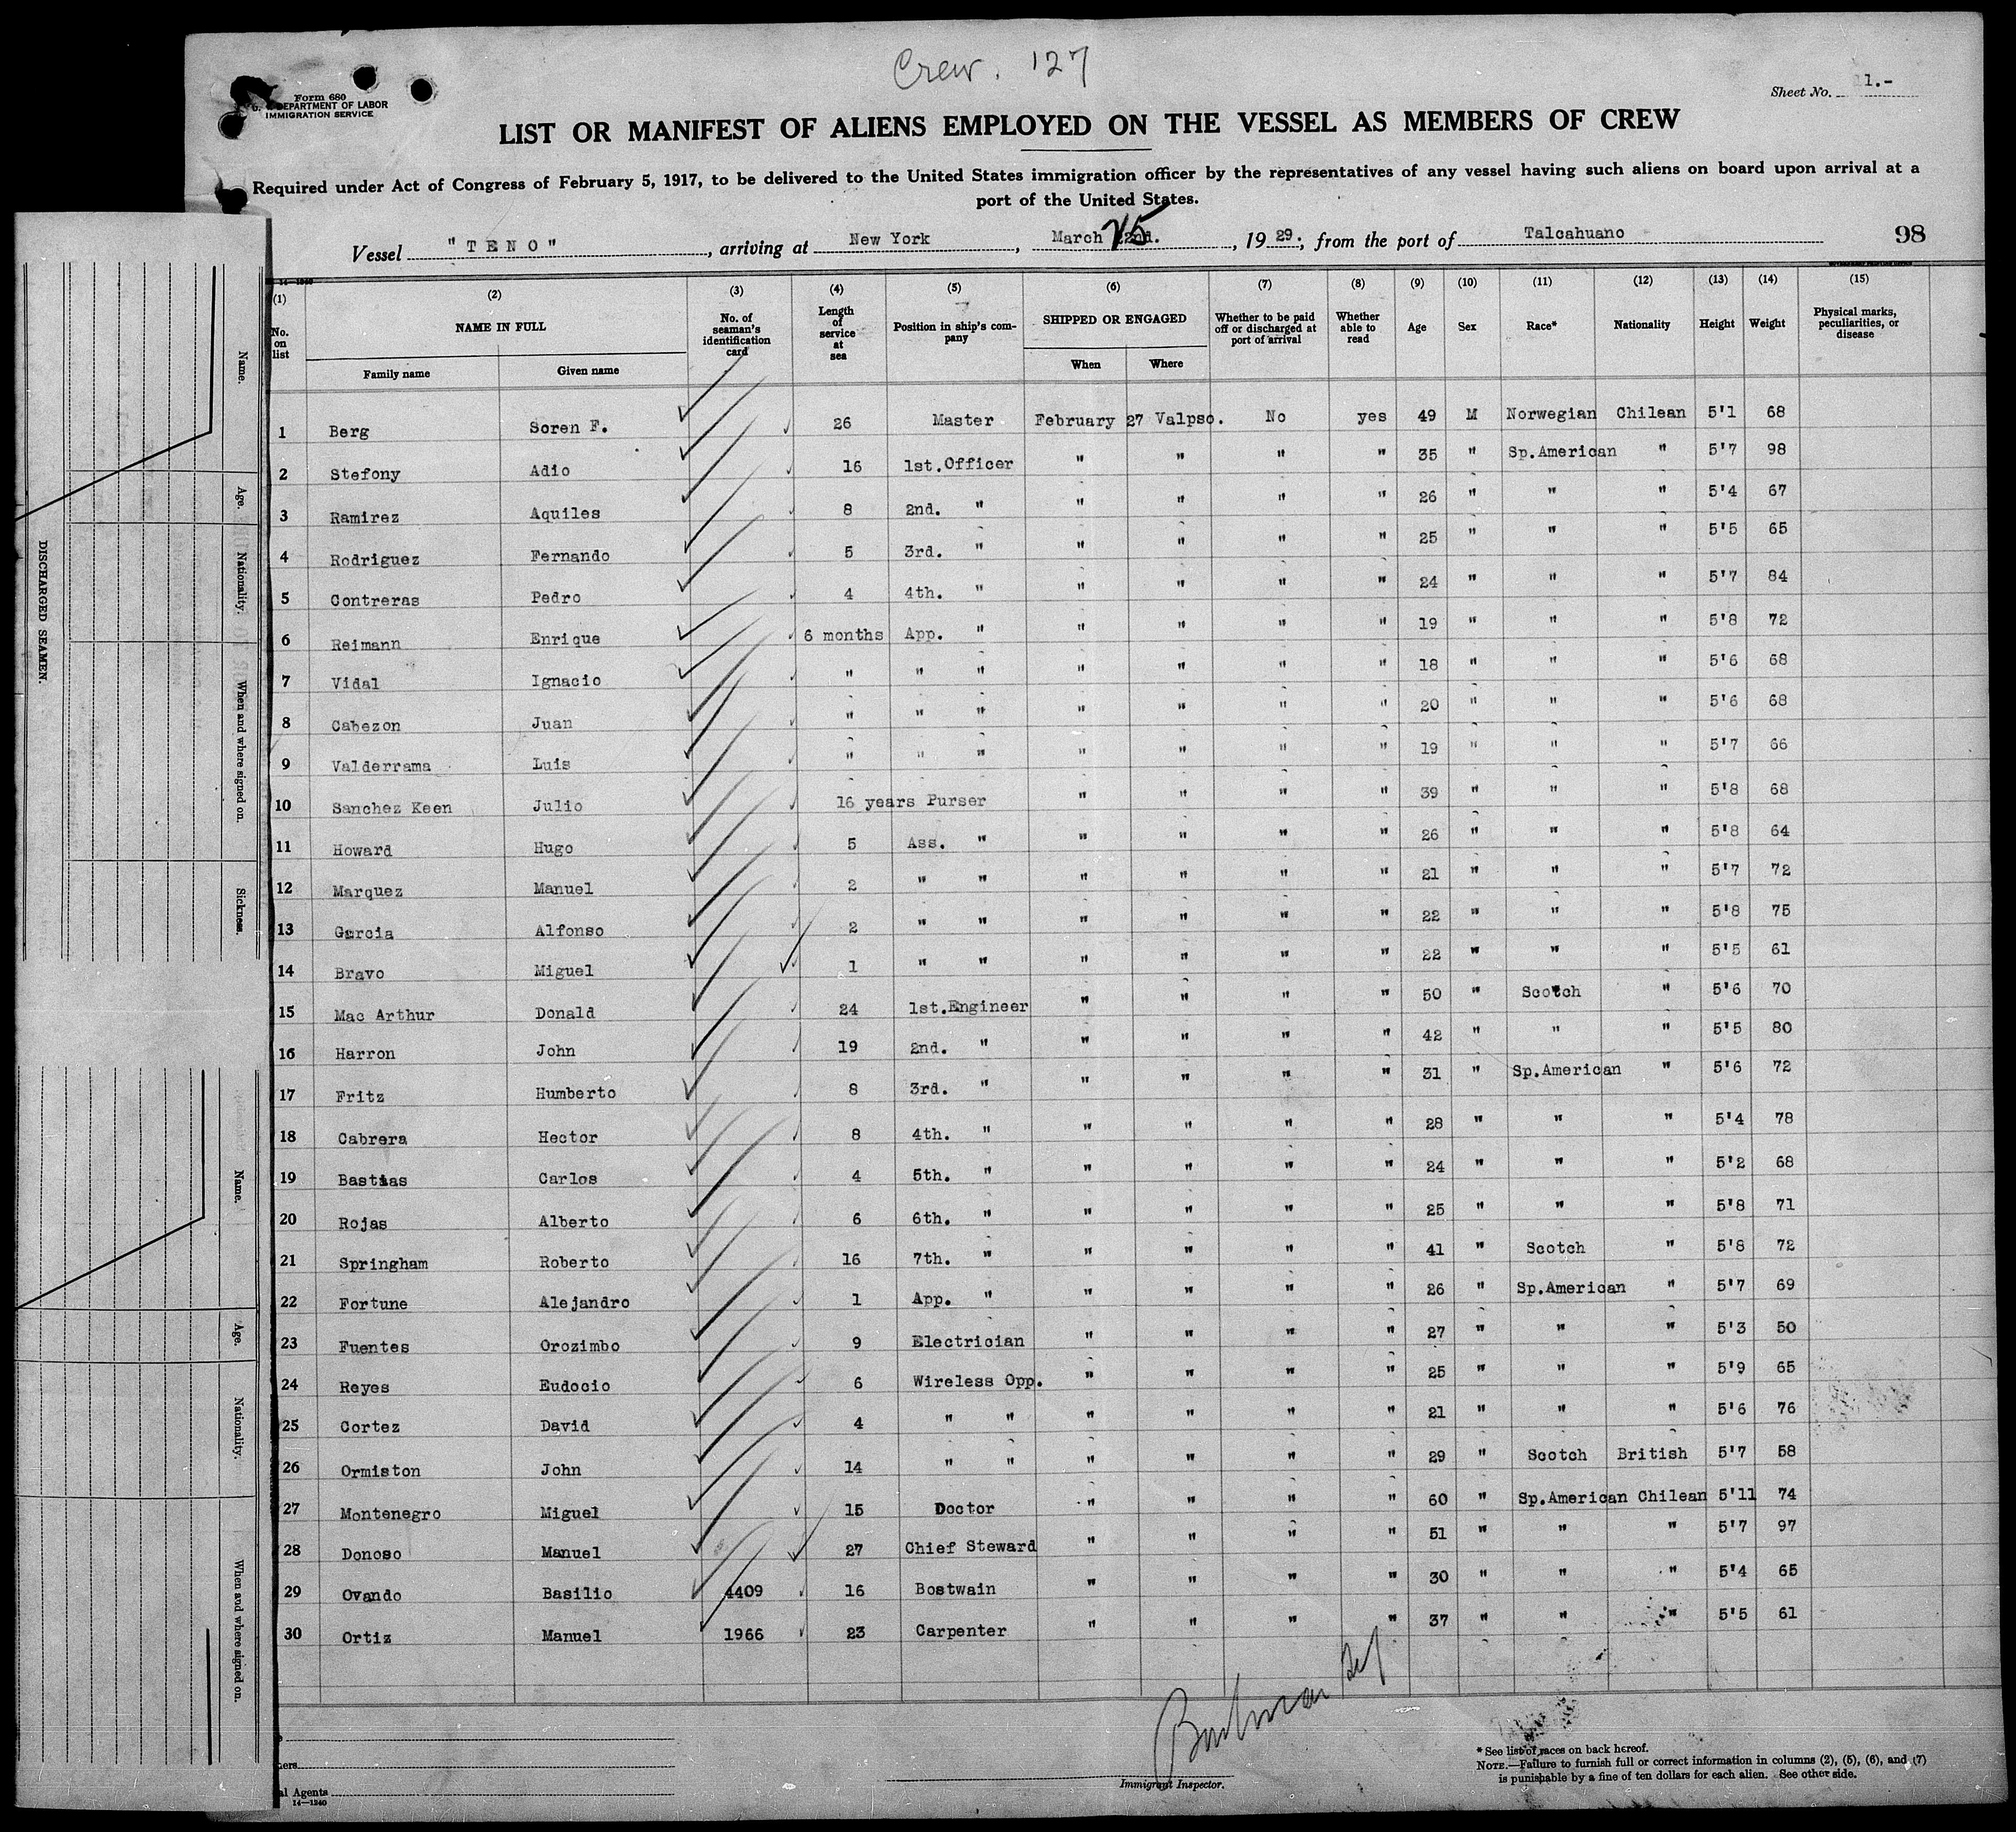 Crew. 127
Form 680
DEPARTMENT OF LABOR
IMMIGRATION SERVICE
Sheet No. 1.-
LIST OR MANIFEST OF ALIENS EMPLOYED ON THE VESSEL AS MEMBERS OF CREW
Required under Act of Congress of February 5, 1917, to be delivered to the United States immigration officer by the representatives of any vessel having such aliens on board upon arrival at a
port of the United States.
Vessel "TENO", arriving at New York, March 25 22nd., 1929.; from the port of Talcahuano 98
14—1240
(1) (2) (3) (4) (5) (6) (7) (8) (9) (10) (11) (12) (13) (14) (15)
No. on list NAME IN FULL Family name Given name No. of seaman's identification card Length of service at sea Position in ship's company SHIPPED OR ENGAGED When Where Whether to be paid off or discharged at port of arrival Whether able to read Age Sex Race* Nationality Height Weight Physical marks, peculiarities, or disease
1 Berg Soren F. 26 Master February 27 Valpso. No yes 49 M Norwegian Chilean 5'1 68
2 Stefony Adio 16 1st.Officer " " " " 35 " Sp.American " 5'7 98
3 Ramirez Aquiles 8 2nd. " " " " " 26 " " " 5'4 67
4 Rodriguez Fernando 5 3rd. " " " " " 25 " " " 5'5 65
5 Contreras Pedro 4 4th. " " " " " 24 " " " 5'7 84
6 Reimann Enrique 6 months App. " " " " " 19 " " " 5'8 72
7 Vidal Ignacio " " " " " " " 18 " " " 5'6 68
8 Cabezon Juan " " " " " " " 20 " " " 5'6 68
9 Valderrama Luis " " " " " " " 19 " " " 5'7 66
10 Sanchez Keen Julio 16 years Purser " " " " 39 " " " 5'8 68
11 Howard Hugo 5 Ass. " " " " " 26 " " " 5'8 64
12 Marquez Manuel 2 " " " " " " 21 " " " 5'7 72
13 Garcia Alfonso 2 " " " " " " 22 " " " 5'8 75
14 Bravo Miguel 1 " " " " " " 22 " " " 5'5 61
15 Mac Arthur Donald 24 1st.Engineer " " " " 50 " Scotch " 5'6 70
16 Harron John 19 2nd. " " " " " 42 " " " 5'5 80
17 Fritz Humberto 8 3rd. " " " " " 31 " Sp.American " 5'6 72
18 Cabrera Hector 8 4th. " " " " " 28 " " " 5'4 78
19 Bastias Carlos 4 5th. " " " " " 24 " " " 5'2 68
20 Rojas Alberto 6 6th. " " " " " 25 " " " 5'8 71
21 Springham Roberto 16 7th. " " " " " 41 " Scotch " 5'8 72
22 Fortune Alejandro 1 App. " " " " " 26 " Sp.American " 5'7 69
23 Fuentes Orozimbo 9 Electrician " " " " 27 " " " 5'3 50
24 Reyes Eudocio 6 Wireless Opp. " " " " 25 " " " 5'9 65
25 Cortez David 4 " " " " " " 21 " " " 5'6 76
26 Ormiston John 14 " " " " " " 29 " Scotch British 5'7 58
27 Montenegro Miguel 15 Doctor " " " " 60 " Sp.American Chilean 5'11 74
28 Donoso Manuel 27 Chief Steward " " " " 51 " " " 5'7 97
29 Ovando Basilio 4409 16 Bostwain " " " " 30 " " " 5'4 65
30 Ortiz Manuel 1966 23 Carpenter " " " " 37 " " " 5'5 61
Immigrant Inspector.
* See list of races on back hereof.
NOTE.—Failure to furnish full or correct information in columns (2), (5), (6), and (7)
is punishable by a fine of ten dollars for each alien. See other side.
al Agents
14—1240
DISCHARGED SEAMEN.
Name.
Age.
Nationality.
When and where signed on.
Sickness.
Name.
Age.
Nationality.
When and where signed on.